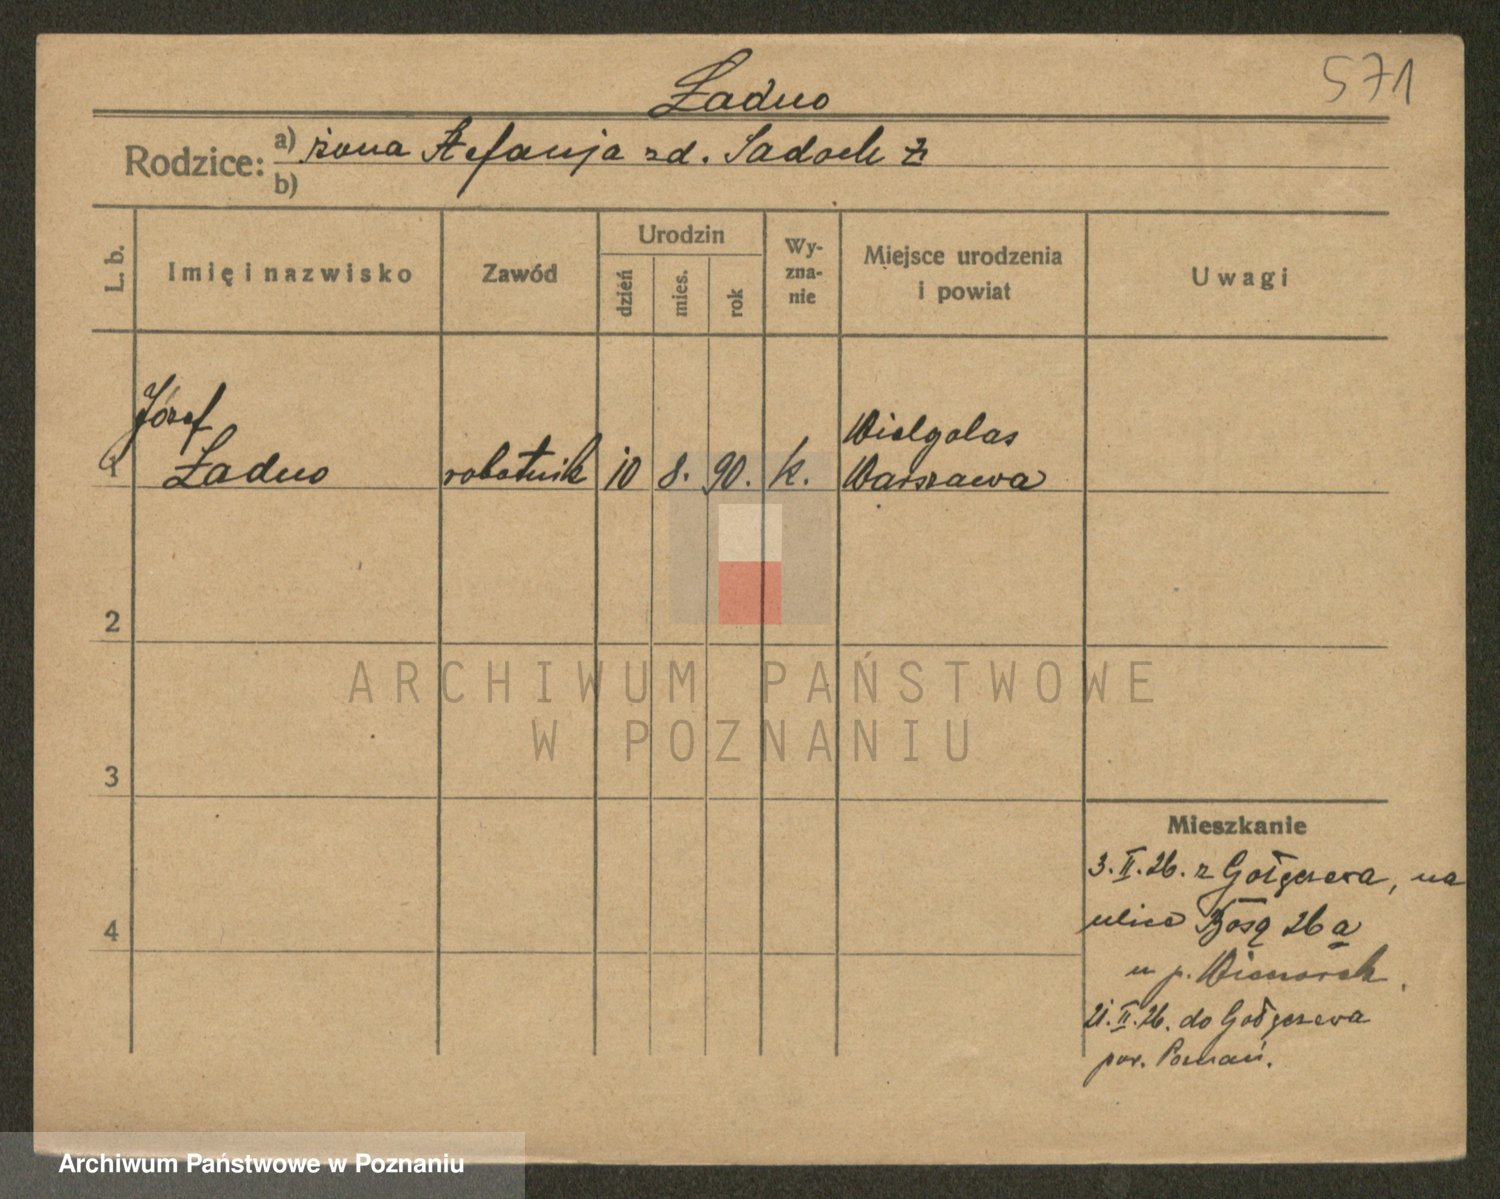 Ładno
571
Rodzice: a) żona Stefanja zd. Sadoch
b)
L. b.
Imię i nazwisko
Zawód
Urodzin
dzień
mies.
rok
Wy-
zna-
nie
Miejsce urodzenia
i powiat
Uwagi
Józef
1 Ładno robotnik 10 8. 90. k. Wielgolas
Warszawa
2
3
4
Mieszkanie
3. II. 26. z na
ulicę 26 a
u p.
21. II. 26. do
pow. Poznań.
ARCHIWUM PAŃSTWOWE
W POZNANIU
Archiwum Państwowe w Poznaniu